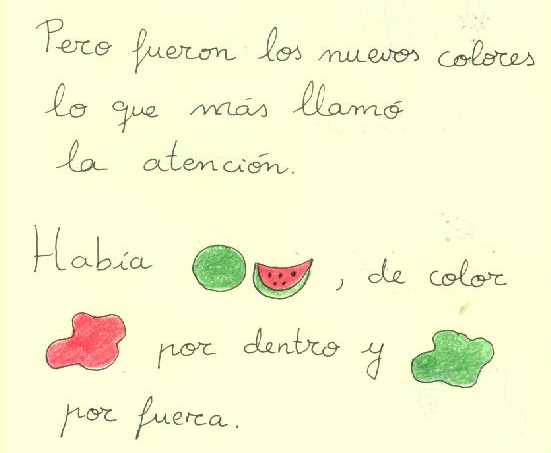 Pero fueron los nuevos colores
lo que más llamó
la atención.
Había , de color
por dentro y
por fuera.